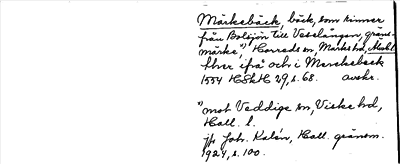 Märkebäck, bäck, som rinner
från Bolsjön till Veselången, gräns-
märke,1) Horreds sn, Marks hd, Älvsbl
thver ifrå och i Merckebeck
1554 HSkH 29, s. 68. avskr.
1) mot Veddige sn, Viske hd,
Hall. l.
jfr Joh. Kalén, Hall. gränsm.
1924, s. 100.